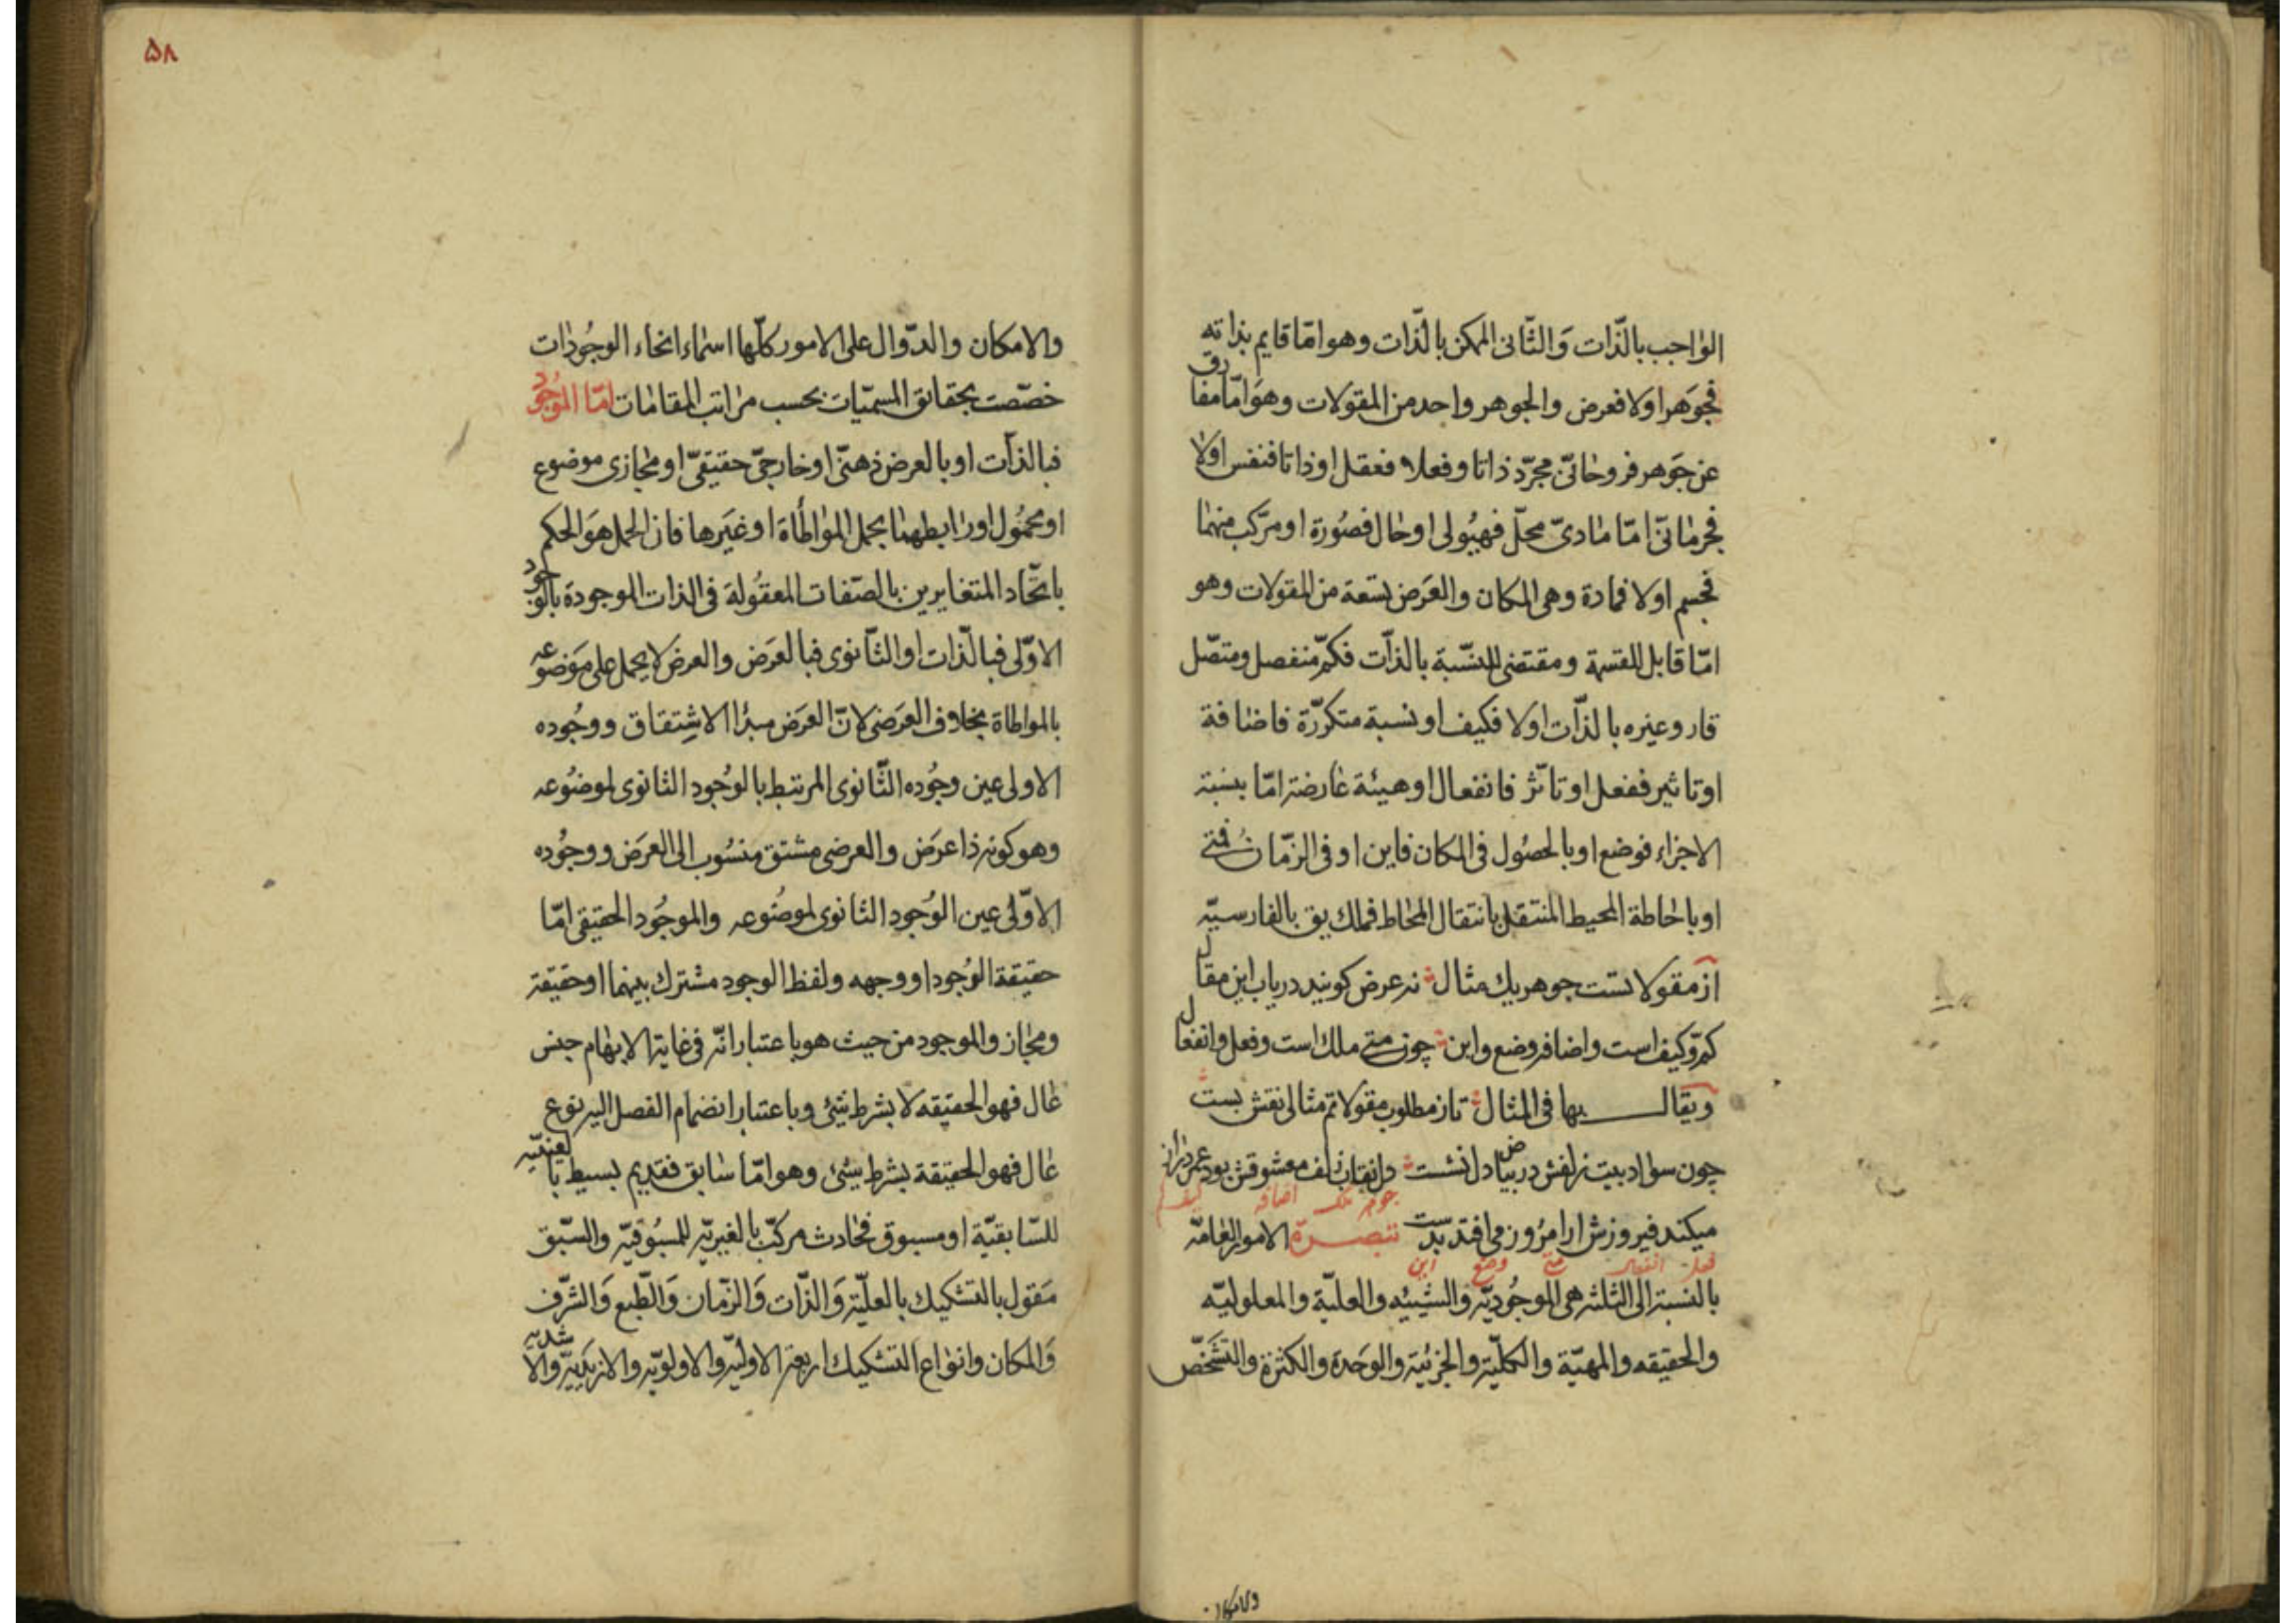 الواجب بالذّات وَالثّانی الممکن بالذّات وهو امّا قایم بذاته
فجَوَهر اولا فعرض والجوهر واحد من المقولات وهوَ امّا مفارق
عن جَوهر فروحانیّ مجرّد ذاتا وفعلا فعقل او ذاتا فنفس اولا
فجرمانیّ امّا مادیّ محلّ فهیُولی او حال فصُورة او مرکّب منهما
فجسم اولا فمادة وهی المکان والعَرَض تسعة من المقولات وهو
امّا قابل للقسمة ومقتضی للنسّبة بالذّات فکمّ منفصل ومتصّل
قار وغیره بالذّات اولا فکیف او نسبة متکرّرة فاضافة
او تاثیر ففعل او تاثّر فانفعال او هیئة عارضة امّا بنسبة
الاجزاء فوضع او بالحصُول فی المکان فاین او فی الزمّان فمتی
او باحاطة المحیط المنتقل بانتقال المحاط فملك یق بالفارسیّه
از مقولاتست جوهر یك مثال نه عرض کویند دریاب این مقال
کمّ وکیف است واضافه وضع واین چون متی ملك است وفعل وانفعال
ویقال بها فی المثال تاز مطلوب مقولاتم مثالی نقش بست
چون سواد بیت زلفش در بیاض دل نشست دل نقاب زلف معشوقش بود عمر دراز
جوهر ملك اضافه کیف کم
میکند فیروزش ار امرُوز می افتد بدست تبصرة الامور العامّه
فعل انفعال متی وضع این
بالنسبة الی الثلثه هی الموجُودیّه والشیئیّه والعلیّة والمعلولیّه
والحقیقه والمهیّة والکلّیّة والجزئیّة والوَحدَة والکثرة والتشَخّص
والامکان
۵۸
والامکان والدّوال علی الامور کلّها اسماء انحاء الوجُودات
خصّصت بحقائق المسمّیات بحسب مراتب المقامات امّا الموجُود
فبالذّات او بالعرض ذهنیّ او خارجیّ حقیقیّ او مجازی موضوع
او محمُول او رابطهما بحمل المواطأة او غیَرها فان الحمل هوَ الحکم
باتّحاد المتغایرین بالصّفات المعقُولة فی الذات الموجودة بالوجُود
الاوّلی فبالذّات او الثّانوی فبالعَرَض والعرض لا یحمل علی مَوضوعه
بالمواطاة بخلاف العَرَضی لانّ العَرَض مبدٲ الاشِتقاق ووجُوده
الاولی عین وجُوده الثّانوی المرتبط بالوُجود الثانوی لموضُوعه
وهو کونه ذا عرَض والعرضی مشتق منسُوب الی العَرَض ووجُوده
الاوّلی عین الوُجود الثانوی لموضُوعه والموجُود الحقیقی امّا
حقیقة الوُجود او وجهه ولفظ الوجود مشترك بینهما او حقیقة
ومجاز والموجود من حیث هو باعتبار انّه فی غایة الابهام جنس
عال فهو الحقیقه لا بشرط شیئ وباعتبار انضمام الفصل الیه نوع
عال فهو الحقیقة بشرط شیئ وهو امّا سابق فقدیم بسیط بالعینیّه
للسّابقیّة او مسبوق فحادث مرکّب بالغیریّه للمسبُوقیّه والسّبق
مَقول بالتشکیك بالعلیّة وَالذّات وَالزّمان وَالطّبع وَالشّرف
وَالمکان وانواع التشکیك اربعة الاولیّه والاولویّه والازیَدیّه والاشدیه